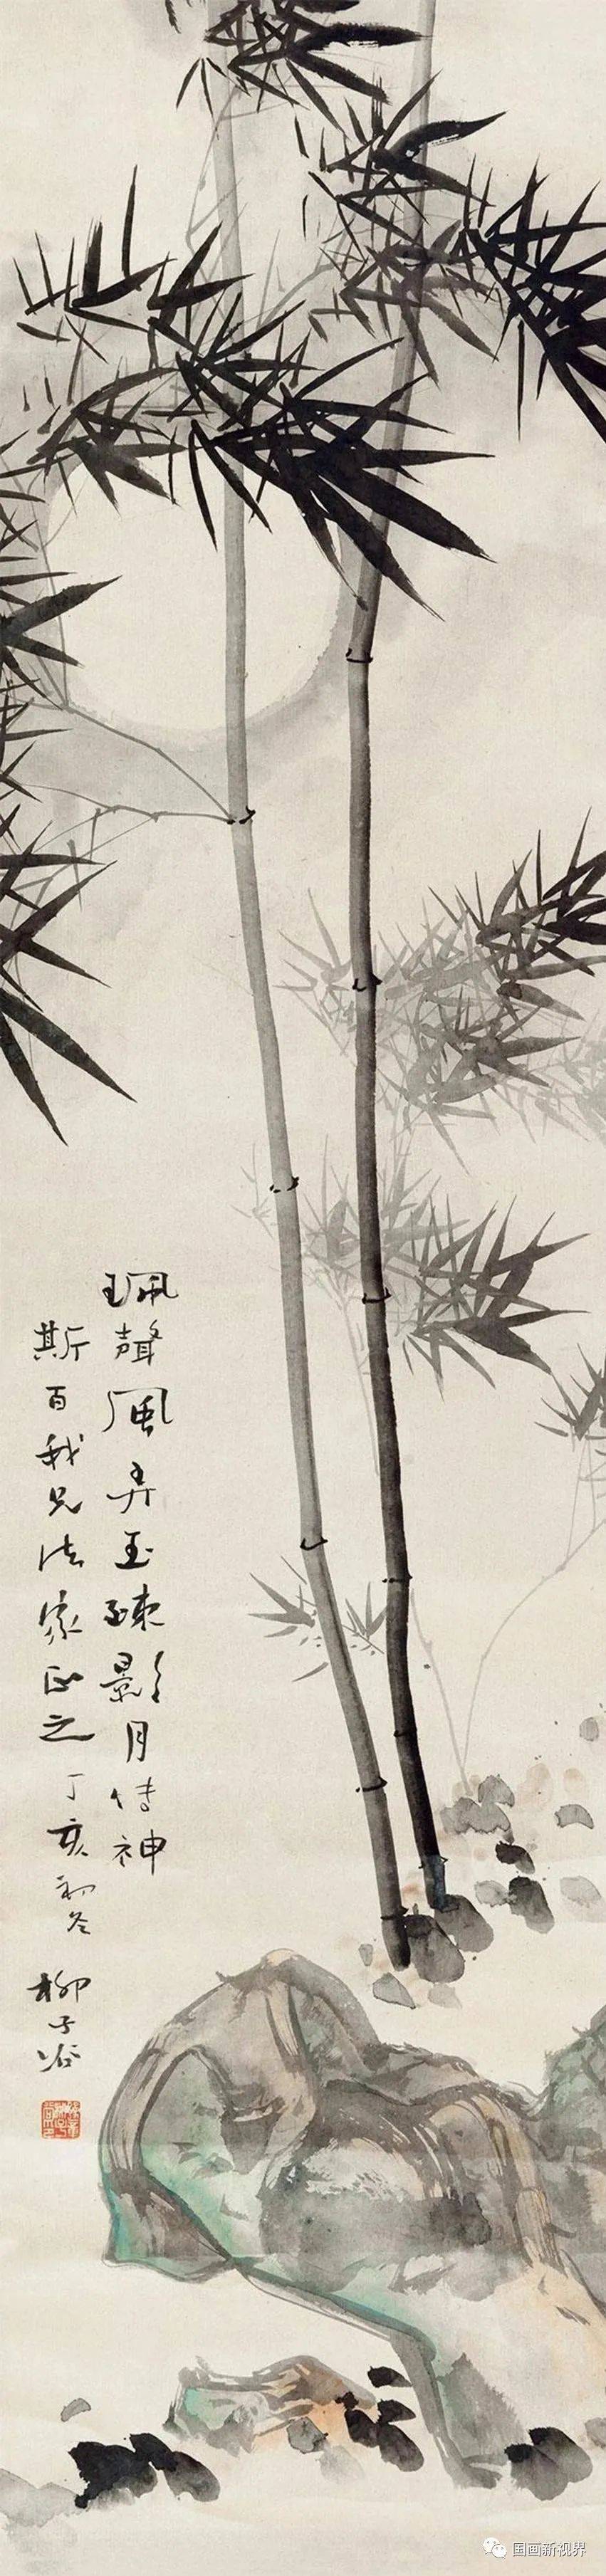 珮聲風弄玉疎影月传神
斯百我兄法家正之丁亥初冬
柳子谷
国画新视界